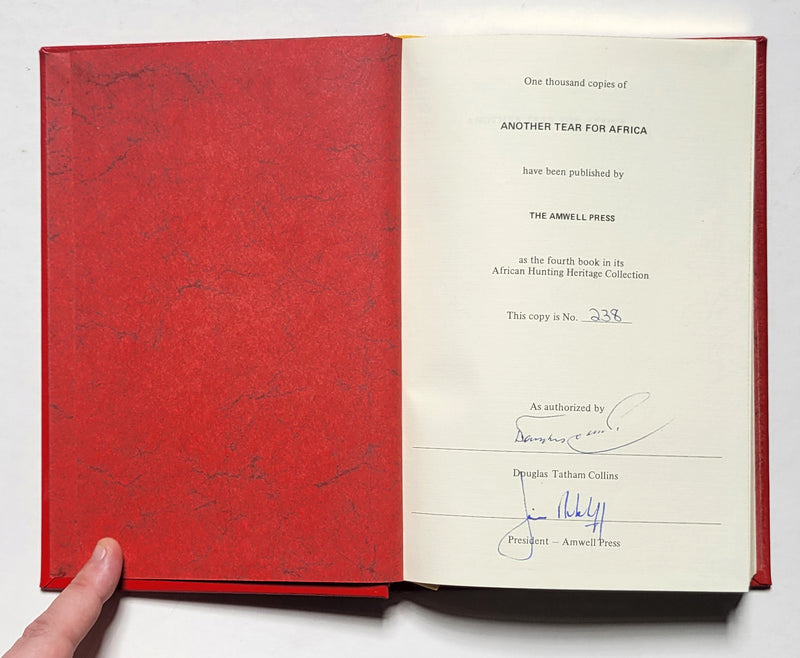 One thousand copies of
ANOTHER TEAR FOR AFRICA
have been published by
THE AMWELL PRESS
as the fourth book in its
African Hunting Heritage Collection
This copy is No. 238
As authorized by
Douglas Tatham Collins
President — Amwell Press